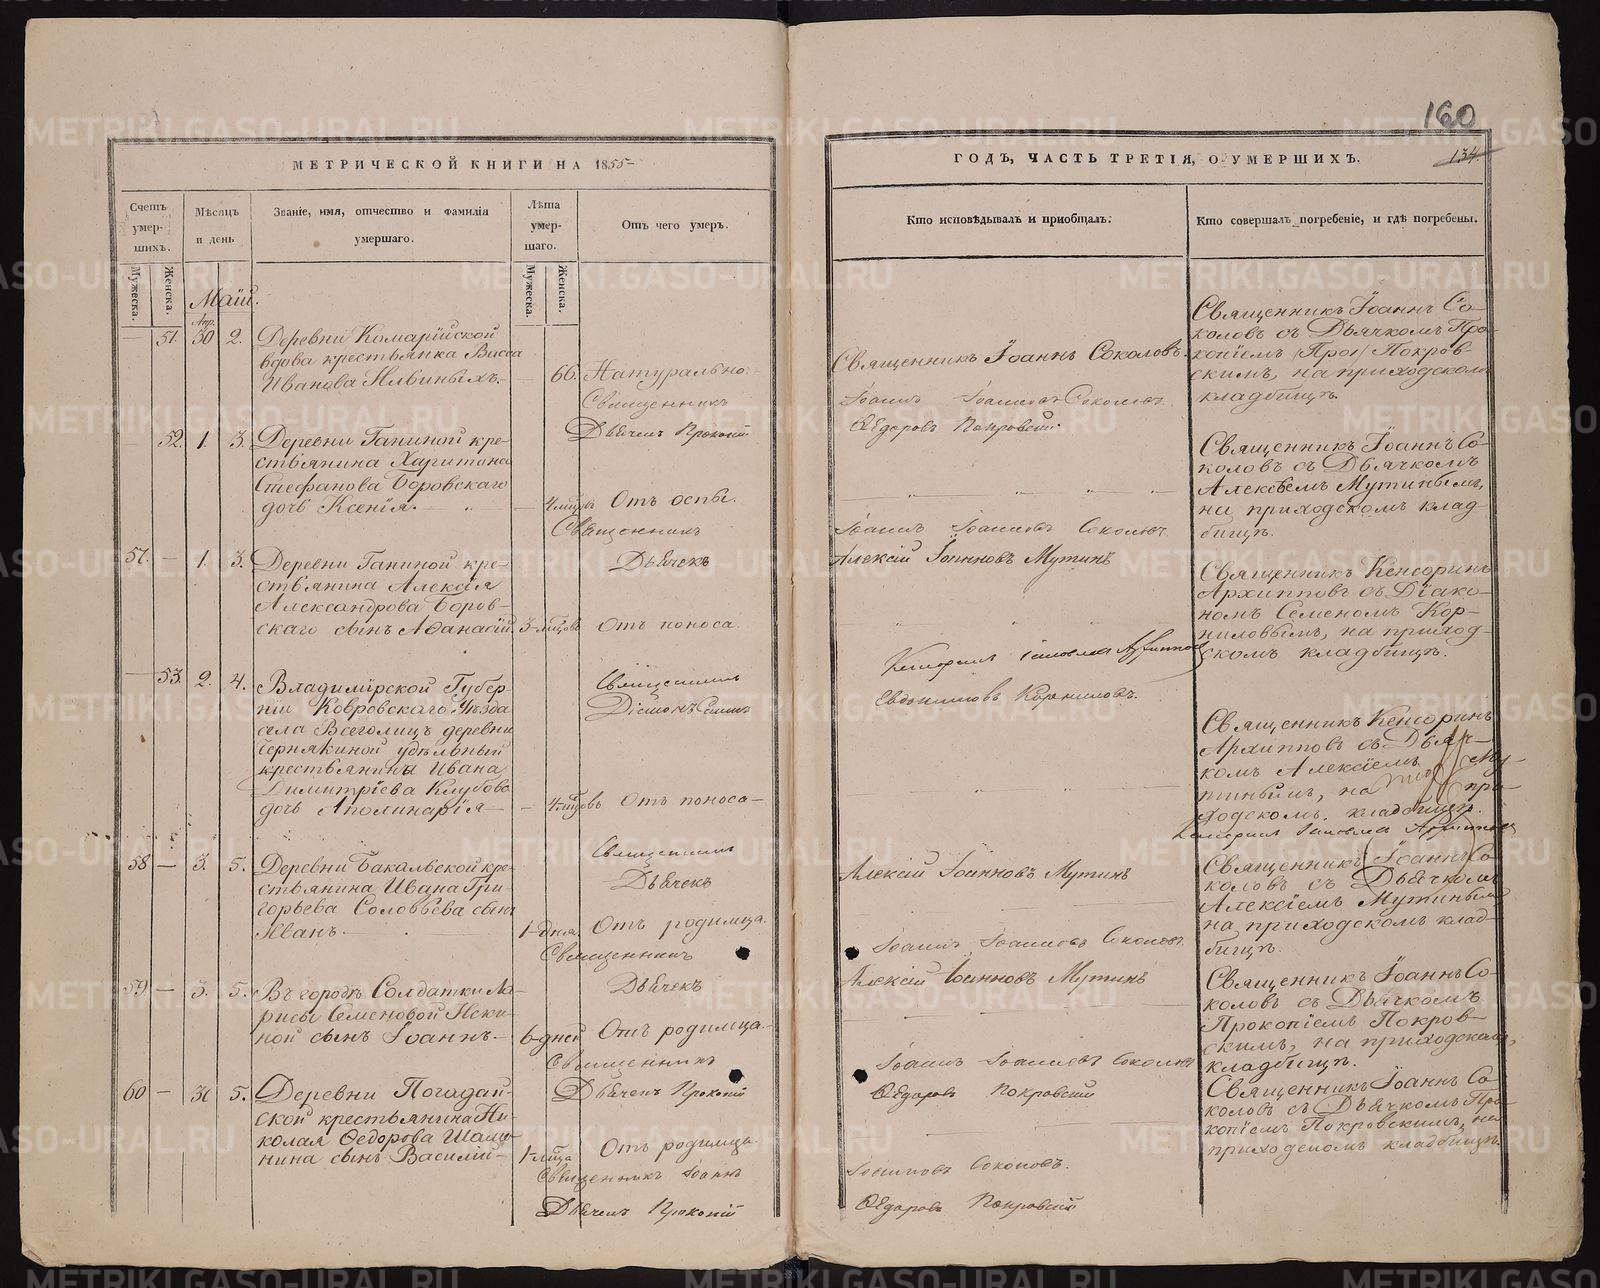 160
134
МЕТРИЧЕСКОЙ КНИГИ НА 1855
ГОДЪ, ЧАСТЬ ТРЕТІЯ, О УМЕРШИХЪ.
Счетъ умер- шихъ.
Мужеска. Женска.
Мѣсяцъ и день
Званіе, имя, отчество и фамилія умершаго.
Лѣта умер- шаго.
Мужеска. Женска.
Отъ чего умеръ.
Кто исповѣдывалъ и приобщалъ:
Кто совершалъ погребеніе, и гдѣ погребены.
Маій.
Апр.
51. 30 2. Деревни Комарійской
вдова крестьянка Васса
Иванова
66. Натурально.
Священникъ
Дьячекъ Прокопій
Священникъ Іоаннъ Соколовъ.
Іоаннъ Іоанновъ Соколовъ.
Ѳедоровъ Покровскій.
Священникъ Іоаннъ Со-
коловъ съ Дьячкомъ Про-
копіемъ Покров-
скимъ, на приходскомъ
кладбищѣ.
52. 1. 3. Деревни Ганиной кре-
стьянина Харитона
Стефанова Боровскаго
дочь Ксенія.
4 мѣцовъ Отъ оспы.
Священникъ
Дьячекъ
Іоаннъ Іоанновъ Соколовъ.
Алексій Іоанновъ Мутинъ
Священникъ Іоаннъ Со-
коловъ съ Дьячкомъ
Алексѣемъ Мутинымъ,
на приходскомъ клад-
бищѣ.
57. — 1. 3. Деревни Ганиной кре-
стьянина Алексѣя
Александрова Боров-
скаго сынъ Аѳанасій.
3 мѣцовъ Отъ поноса
Священникъ
Діаконъ Симеонъ
Архипповъ
Евдокимовъ Корниловъ.
Священникъ Кенсоринъ
Архипповъ съ Діако-
номъ Семеномъ Кор-
ниловымъ, на приход-
скомъ кладбищѣ.
53. 2. 4. Владимірской Губер-
ніи Ковровскаго Уѣзда
села Всеголицъ деревни
Чернякиной удѣльный
крестьянина Ивана
Димитріева Клубова
дочь Аполинарія
4 мѣцовъ Отъ поноса
Священникъ
Дьячекъ
Алексій Іоанновъ Мутинъ
Священникъ Кенсоринъ
Архипповъ съ Дьяч-
комъ Алексіемъ Му-
тинымъ, на при-
ходскомъ кладбищѣ.
58 — 3. 5. Деревни Бакальской кре-
стьянина Ивана Гри-
горьева Соловьева сынъ
Иванъ
1 дня. Отъ родимца.
Священникъ
Дьячекъ
Іоаннъ Іоанновъ Соколовъ.
Алексій Іоанновъ Мутинъ
Священникъ Іоаннъ Со-
коловъ съ Дьячкомъ
Алексіемъ Мутинымъ
на приходскомъ клад-
бищѣ.
59 — 3. 5. Въ городѣ Солдатки Ла-
рисы Семеновой
сынъ Іоаннъ
6 дней Отъ родимца.
Священникъ
Дьячекъ Прокопій
Іоаннъ Іоанновъ Соколовъ
Ѳедоровъ Покровскій
Священникъ Іоаннъ Со-
коловъ съ Дьячкомъ
Прокопіемъ Покров-
скимъ, на приходскомъ,
кладбищѣ.
60 — 5. Деревни Погадай-
ской крестьянина Ни-
колая Ѳедорова
сынъ Василій
Отъ родимца.
Священникъ Іоаннъ
Дьячекъ Прокопій
Іоанновъ Соколовъ.
Ѳедоровъ Покровскій
Священникъ Іоаннъ Со-
коловъ съ Дьячкомъ Про-
копіемъ Покровскимъ, на
приходскомъ кладбищѣ.
METRIKI.GASO-URAL.RU